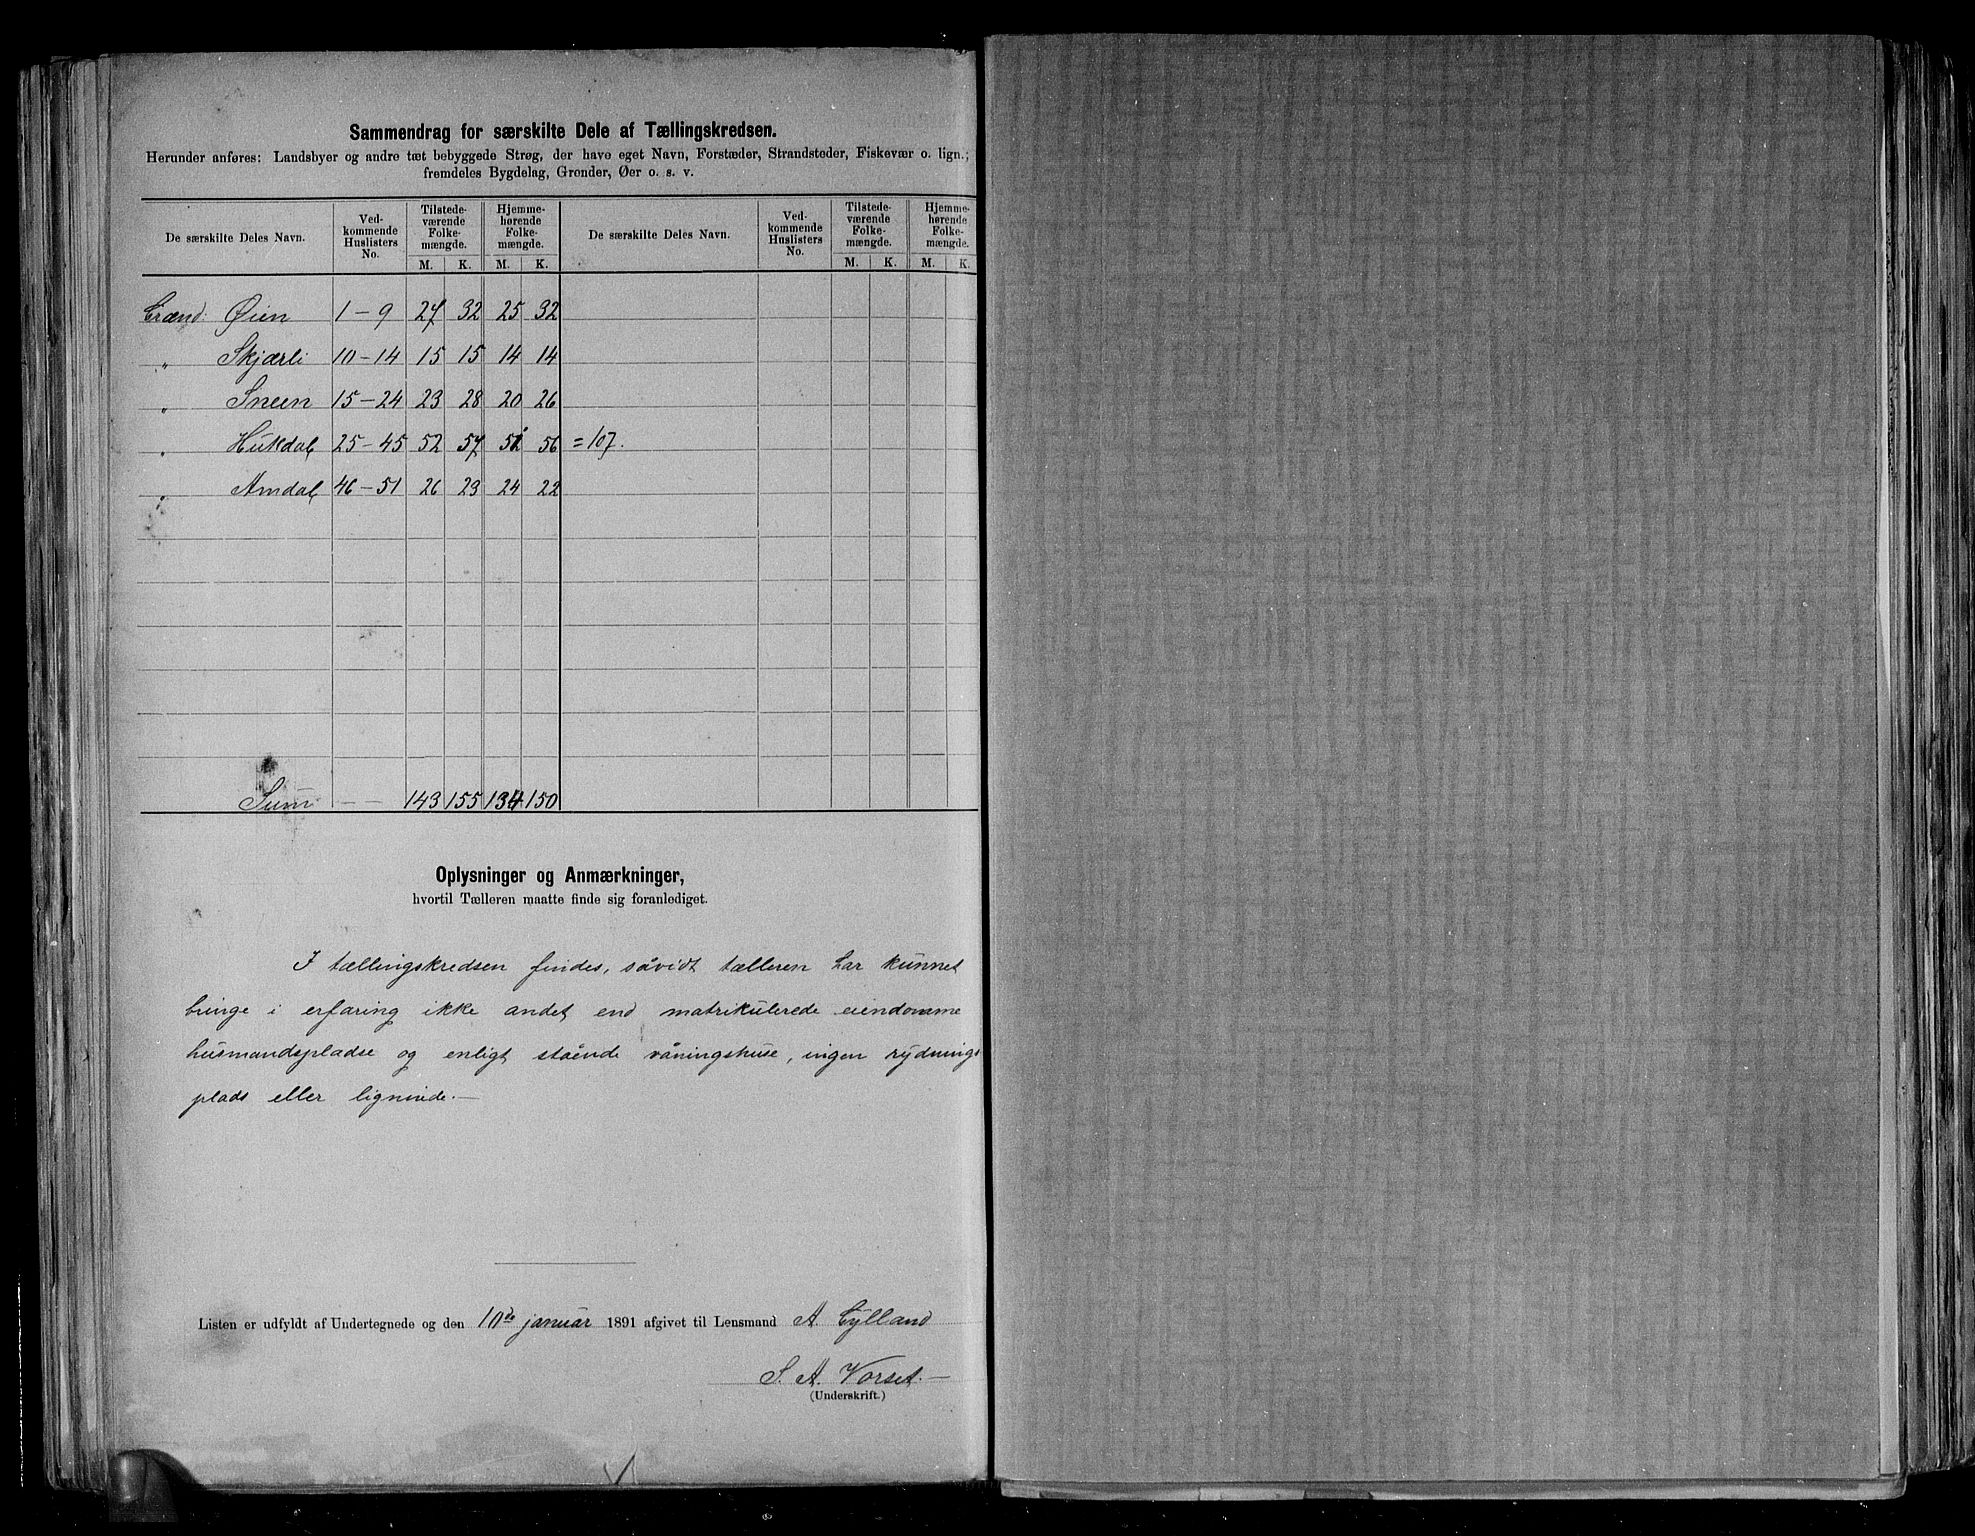 Sammendrag for særskilte Dele af Tællingskredsen.
Herunder anføres: Landsbyer og andre tæt bebyggede Strøg, der have eget Navn, Forstæder, Strandsteder, Fiskevær o. lign.;
fremdeles Bygdelag, Grender, Øer o. s. v.
De særskilte Deles Navn. Ved-kommende Huslisters No. Tilstede-værende Folke-mængde. M. K. Hjemme-hørende Folke-mængde. M. K. De særskilte Deles Navn. Ved-kommende Huslisters No. Tilstede-værende Folke-mængde. M. K. Hjemme-hørende Folke-mængde. M. K.
Grænd: Øien 1-9 27 32 25 32
" Skjærli 10-14 15 15 14 14
" Sneen 15-24 23 28 20 26
" Hukdal 25-45 52 57 51 56 =107.
" Amdal 46-51 26 23 24 22
Sum - - 143 155 134 150
Oplysninger og Anmærkninger,
hvortil Tælleren maatte finde sig foranlediget.
I tællingskredsen findes, såvidt tælleren har kunnet
bringe i erfaring ikke andet end matrikulerede eiendomme
husmandspladse og enligt stående våningshuse, ingen rydnings-
plads eller lignende.—
Listen er udfyldt af Undertegnede og den 10de januar 1891 afgivet til Lensmand A Gylland
S. A. Vorset.—
(Underskrift.)